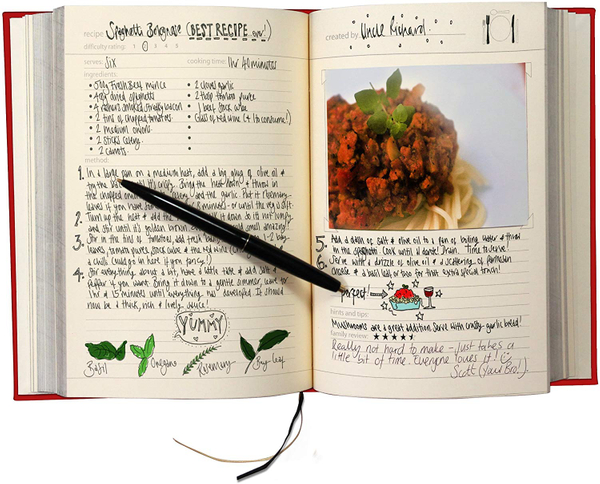 recipe Spaghetti Bolognese (BEST RECIPE ever!)
difficulty rating: 1 2 3 4 5
serves: Six cooking time: 1hr 40minutes
ingredients:
• 500g Fresh Beef mince
• dried spaghetti
• smoked streaky bacon
• 2 tins of chopped tomatoes
• 2 medium onions
• 2 sticks celery
• 2 carrots
• 2 clove garlic
• 2 tbsp tomato puree
• 1 beef stock cube
• Glass of red wine (+ 1 to consume!)
method:
1. In a large pan on a medium heat, add a big glug of olive oil &
fry the bacon until it's crispy. Bring the heat down & throw in
the chopped onions celery and the garlic. Put in rosemary
leaves if you have some or until the veg is soft.
2. Turn up the heat & add the break it down so its not lumpy
and stir until it's golden brown. small amazing!
3. Stir in the tins of tomatoes, add fresh basil 1-2 bay
leaves, tomato puree, stock cube & the red wine
a chilli could go in here if you fancy!)
4. Stir everything about a bit, have a little taste & add salt &
pepper if you want. Bring it down to a gentle simmer, leave for
1 hr & 15 minutes until everything has developed. It should
now be a thick, rich & lovely sauce!
YUMMY
Basil Oregano Rosemary Bay leaf
created by: Uncle Richard.
5. Add a dash of salt & olive oil to a pan of boiling water & throw
in the spaghetti. Cook until al dente! Drain. Time to serve!
6. Serve with a drizzle of olive oil & a scattering of parmesan
cheese & a basil leaf or two for that extra special touch!
perfect!
hints and tips:
Mushrooms are a great addition. Serve with crusty garlic bread!
Family review:
Really not hard to make – just takes a
little bit of time. Everyone loves it!
Scott (Your Bro!)